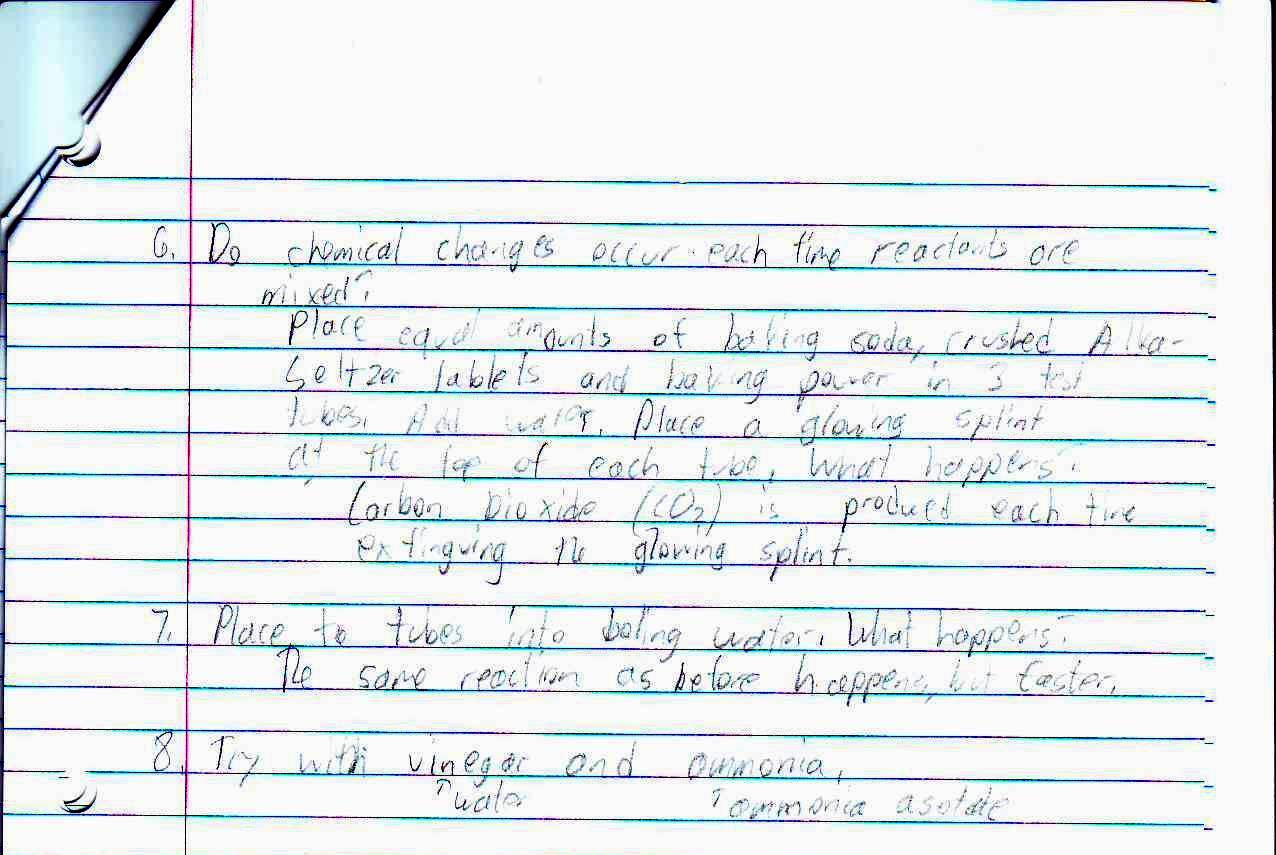 6. Do chemical changes occur each time reactants are
mixed?
Place equal amounts of baking soda, crushed Alka-
Seltzer tablets and baking power in 3 test
tubes. Add water. Place a glowing splint
at the top of each tube, What happens?
Carbon Dioxide (CO2) is produced each time
extinguing the glowing splint.
7. Place to tubes into boling water. What happens?
The same reaction as before happens, but faster.
8. Try with vinegar and ammonia,
↑water ↑ammonia asotate